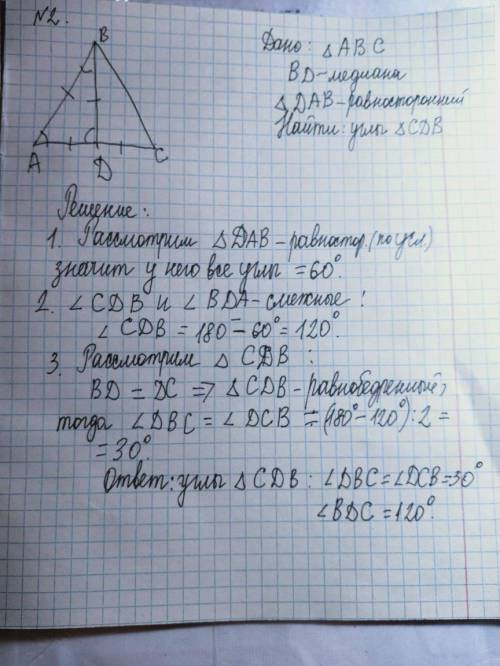 №2.
B
A
D
C
Дано: △ABC
BD-медиана
△DAB-равносторонний
Найти: углы △CDB
Решение:
1. Рассмотрим △DAB-равностор. (по усл.)
значит у него все углы =60°.
2. ∠CDB и ∠BDA-смежные:
∠CDB = 180°-60°=120°.
3. Рассмотрим △CDB:
BD = DC => △CDB-равнобедренный,
тогда ∠DBC = ∠DCB = (180°-120°):2 =
=30°.
Ответ: углы △CDB: ∠DBC=∠DCB=30°
∠BDC=120°.